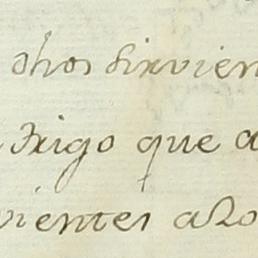 dhos sirvien
Trigo que a
vientes año